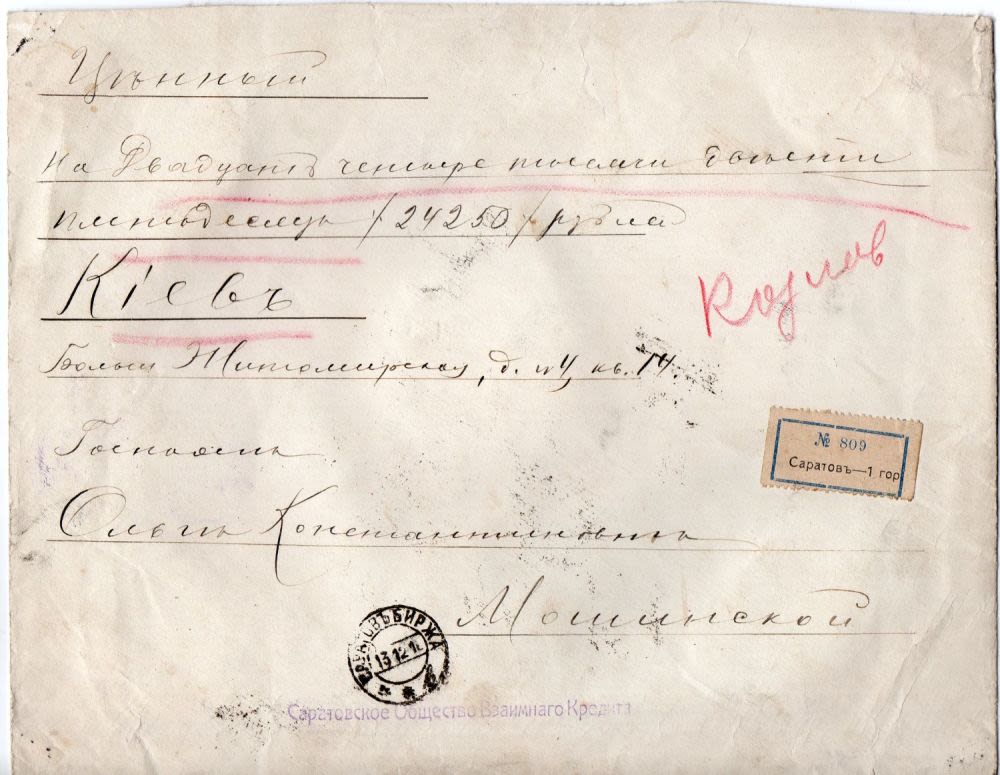 Цѣнный
на Двадцать четыре тысячи двѣсти
пятьдесятъ /24250/ рубля
Кіевъ
Козлов
Больш Житомирская, д. №4, кв. 14.
№ 809
Саратовъ—1 гор
Госпожѣ
Ольгѣ Константиновнѣ
Мошинской
САРАТОВЪ БИРЖА
13 12 16
Саратовское Общество Взаимнаго Кредита